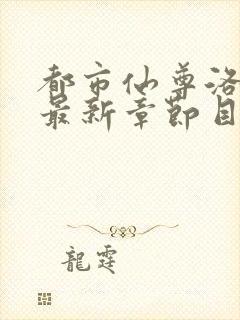 都市仙尊洛
最新章节目
龍霆